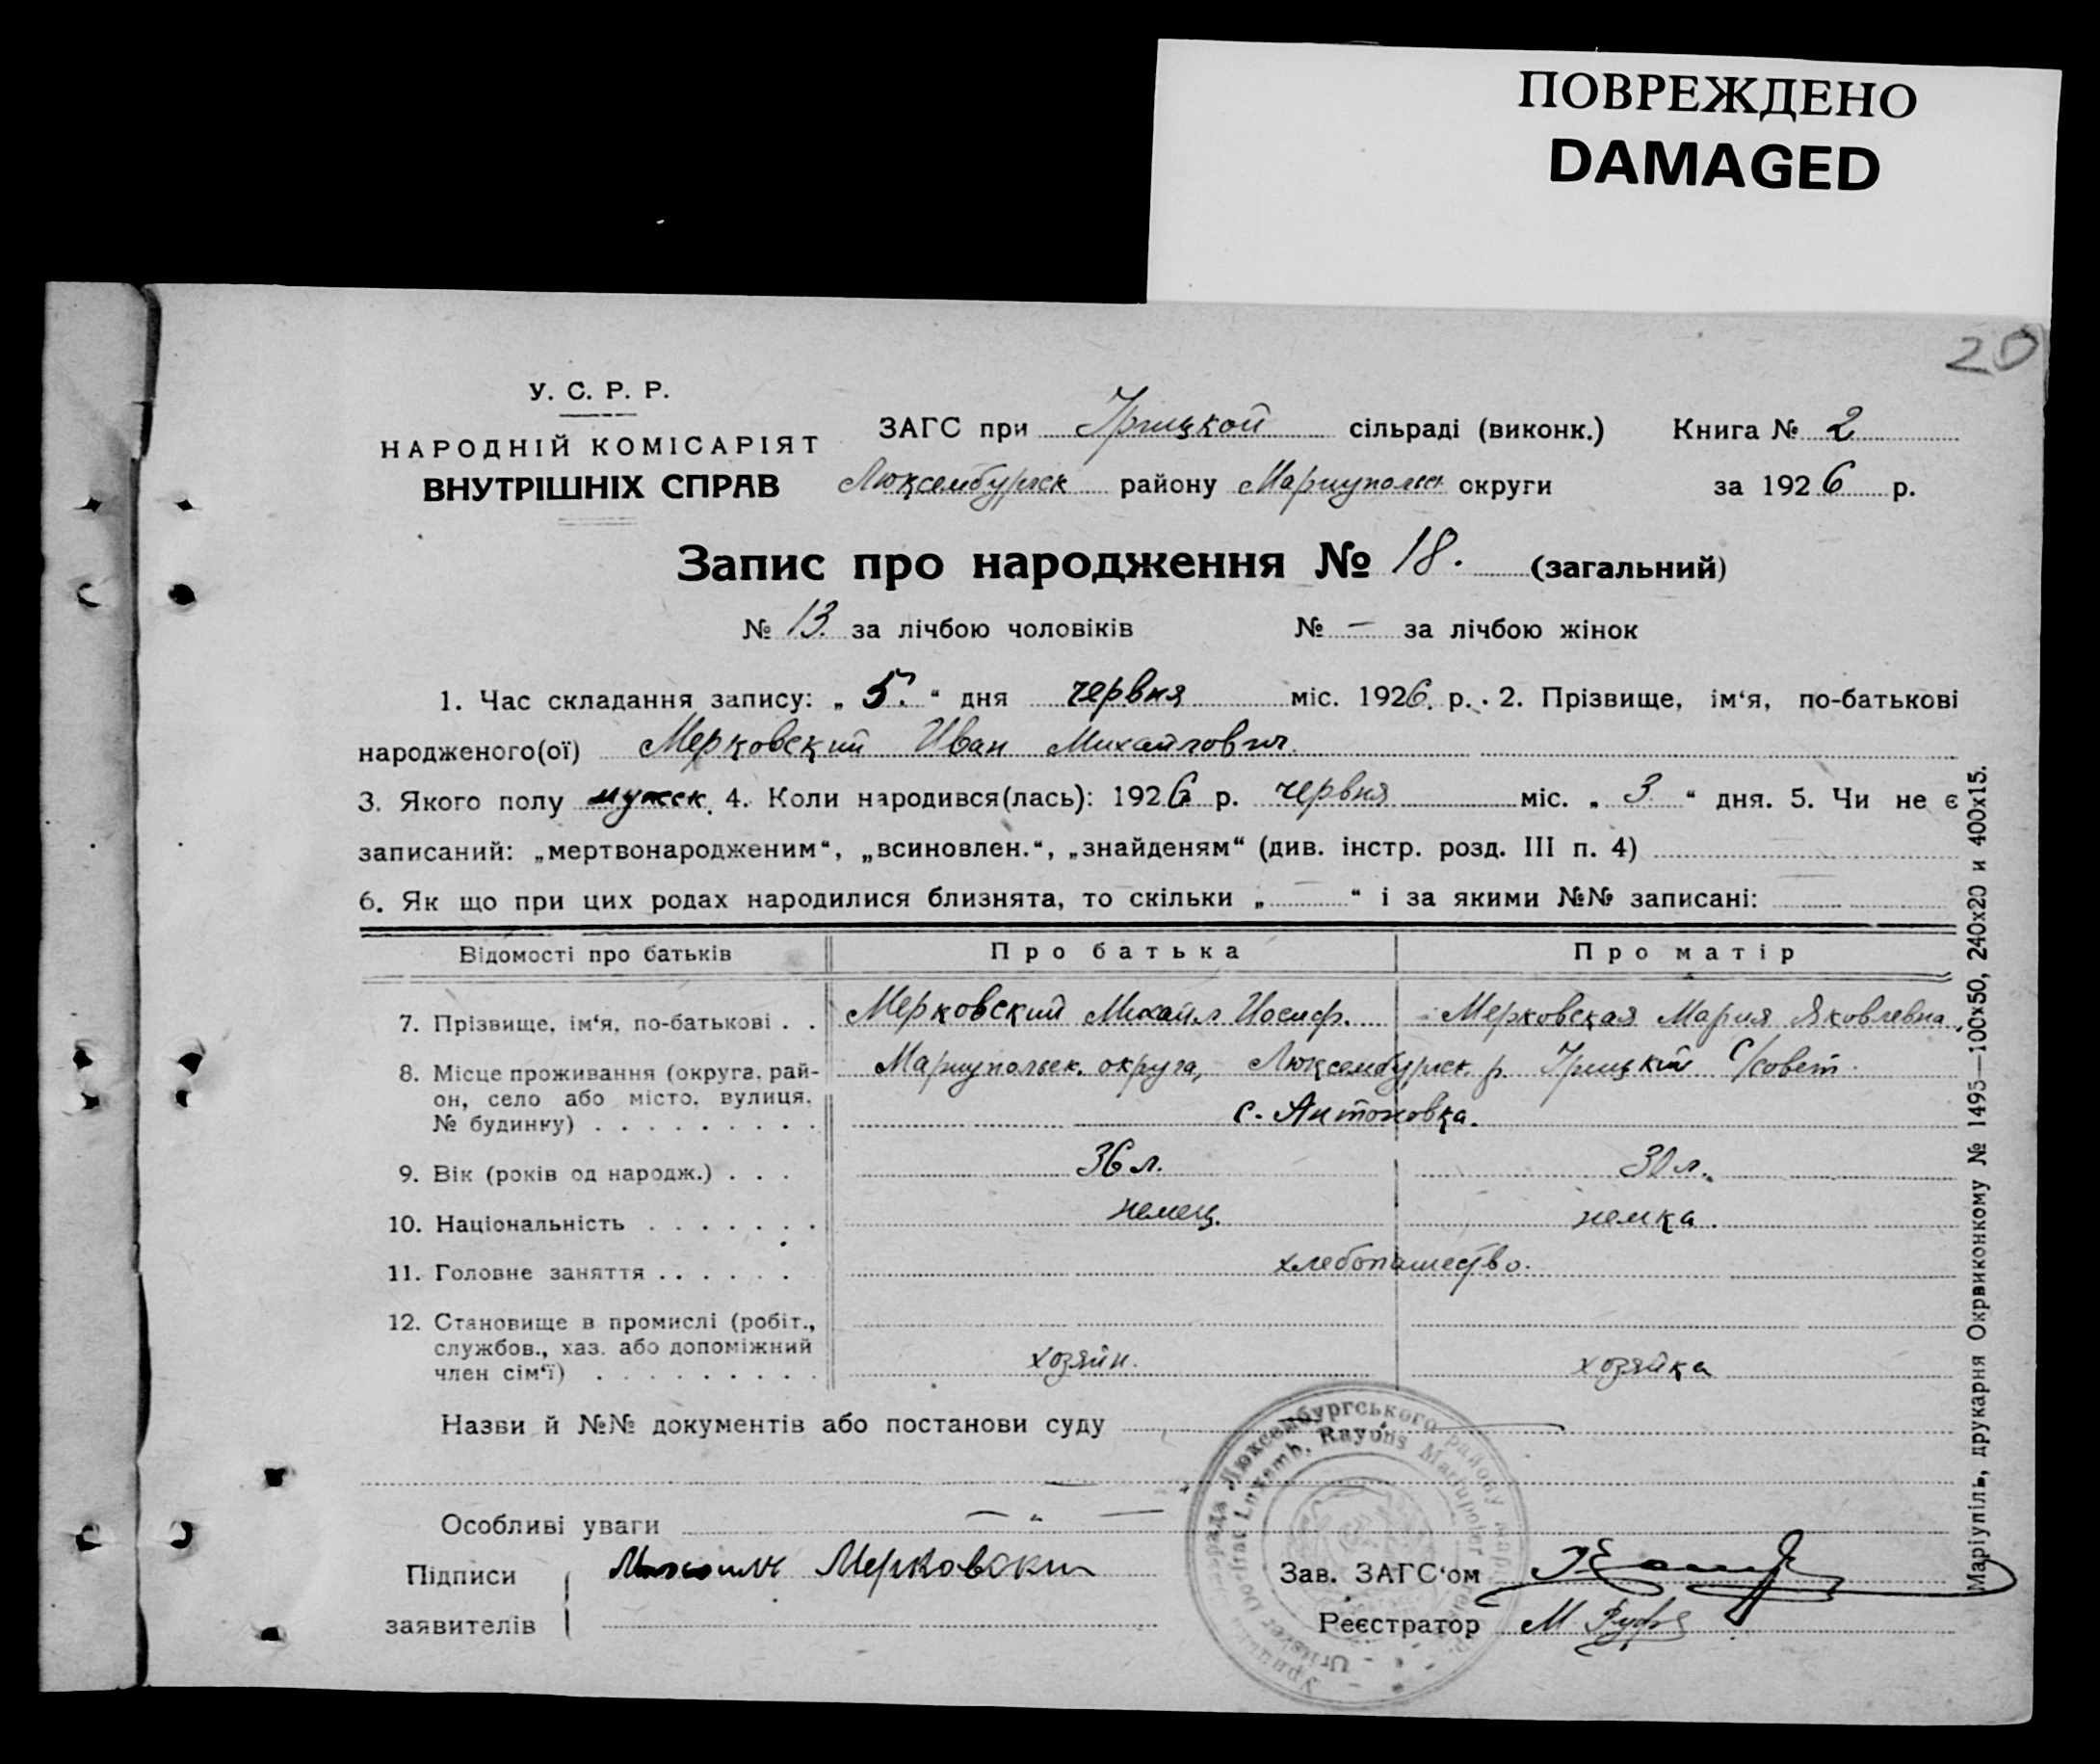 ПОВРЕЖДЕНО
DAMAGED
20
У. С. Р. Р.
НАРОДНІЙ КОМІСАРІЯТ
ВНУТРІШНІХ СПРАВ
ЗАГС при Урицкой сільраді (виконк.) Книга № 2
Люксембургск району Мариупольск округи за 1926 р.
Запис про народження № 18. (загальний)
№ 13. за лічбою чоловіків № — за лічбою жінок
1. Час складання запису: „ 5. “ дня червня міс. 1926. р. 2. Прізвище, ім‘я, по-батькові
народженого(ої) Мерковский Иван Михайлович.
3. Якого полу мужск. 4. Коли народився(лась): 1926 р. червня міс. „ 3 “ дня. 5. Чи не є
записаний: „мертвонародженим“, „всиновлен.“, „знайденям“ (див. інстр. розд. III п. 4)
6. Як що при цих родах народилися близнята, то скільки „ “ і за якими №№ записані:
Відомості про батьків Про батька Про матір
7. Прізвище, ім‘я, по-батькові . . Мерковский Михаил Иосиф. Мерковская Мария Яковлевна
8. Місце проживання (округа, рай- Мариупольск. округа, Люксембургск. р. Урицкий с/совет.
он, село або місто, вулиця,
№ будинку) . . . . . . . . . с. Антоновка.
9. Вік (років од народж.) . . . 36 л. 30 л.
10. Національність . . . . . . . немец. немка.
11. Головне заняття . . . . . . хлебопашество.
12. Становище в промислі (робіт.,
службов., хаз. або допоміжний
член сім‘ї) . . . . . . . . . хозяин. хозяйка
Назви й №№ документів або постанови суду
Особливі уваги — „ —
Підписи Мерковский Зав. ЗАГС‘ом
заявителів Реєстратор М
Люксембургського району
Luxemb. Rayons Mariupoler
Маріупіль, друкарня Окрвиконкому № 1495—100х50, 240х20 и 400х15.